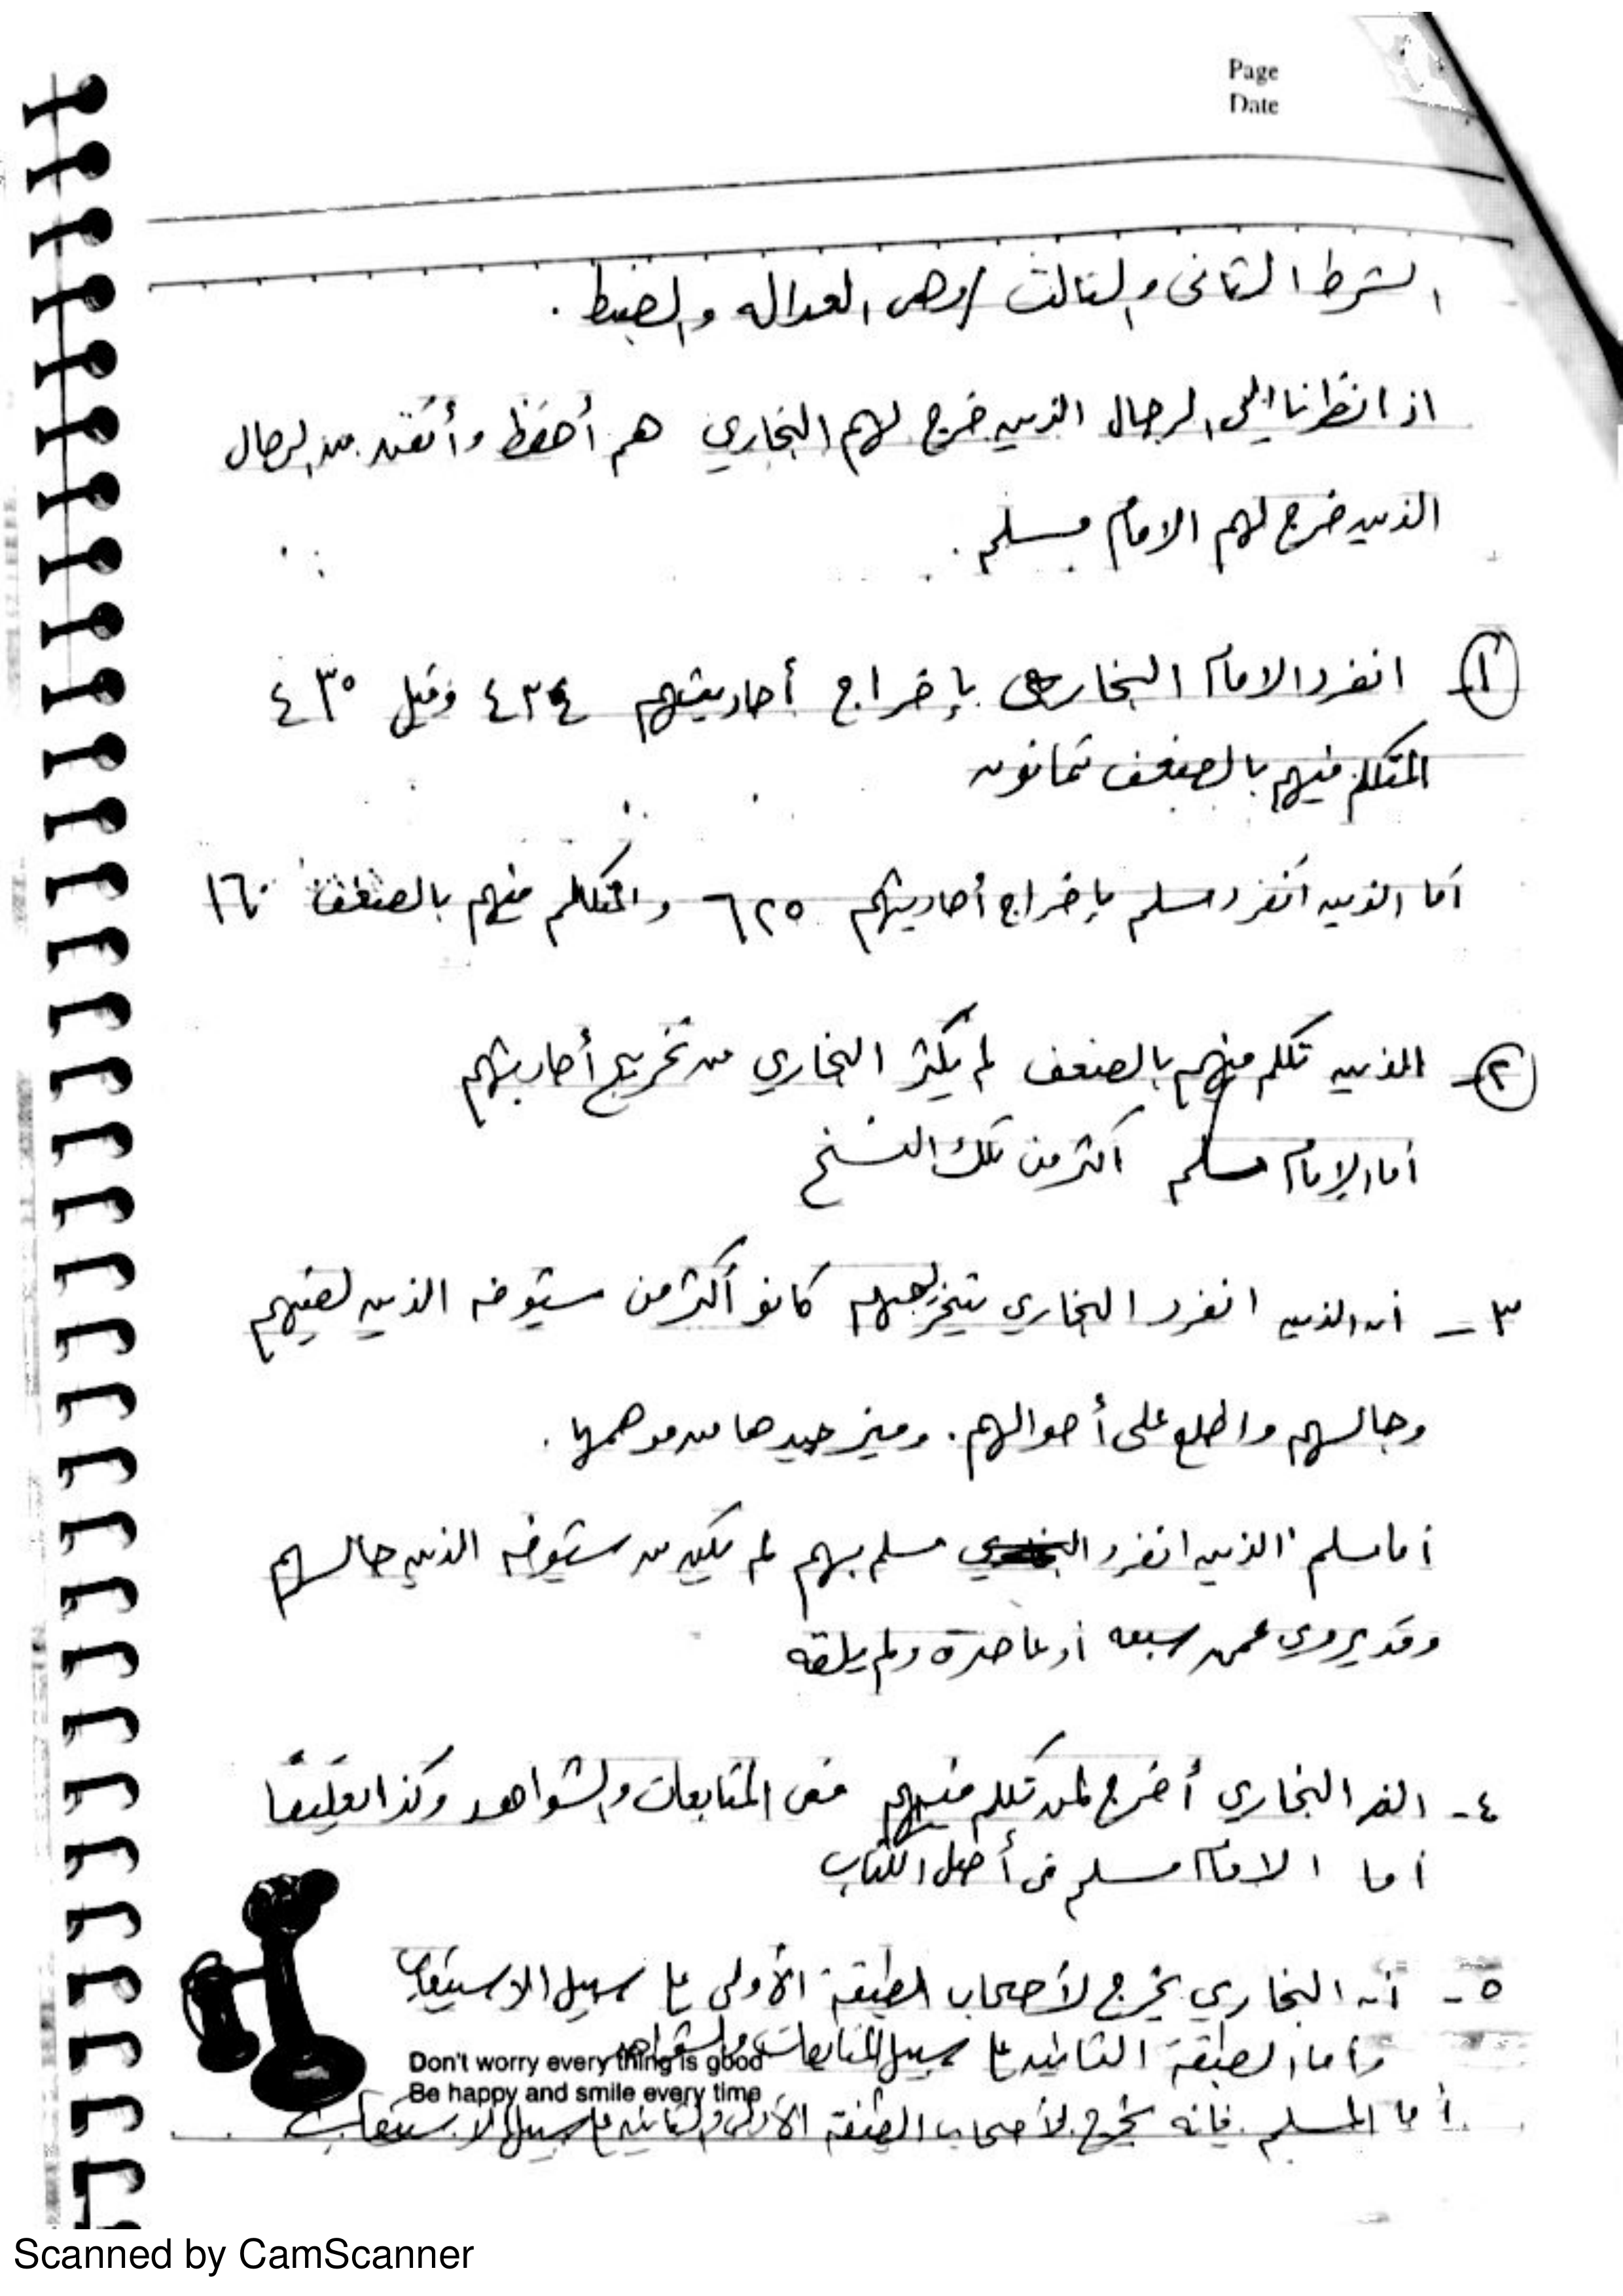 Page
Date
الشرط الثاني والثالث / وهى العداله والضبط .
اذا نظرنا إلى الرجال الذين خرج لهم البخاري هم أحفظ وأتقن من الرجال
الذين خرج لهم الامام مسلم .
١- انفرد الامام البخارى بإخراج أحاديثهم ٤٣٤ وقيل ٤٣٥
المتكلم فيهم بالضعف ثمانون
أما الذين انفرد مسلم بإخراج أحاديثهم ٦٢٥ والمتكلم فيهم بالضعف ١٦٠
٢- الذين تكلم فيهم بالضعف لم يكثر البخاري من تخريج أحاديثهم
أما الإمام مسلم أكثر من تلك النسخ
٣- أن الذين انفرد البخاري بتخريجهم كانو أكثر من شيوخه الذين لقيهم
وجالسهم واطلع على أحوالهم . وميز جيدها من موهمها .
أما مسلم الذين انفرد مسلم بهم لم يكن من شيوخه الذين جالسهم
وقد يروي عمن سبعه أو عاصره ولم يلقه
٤- البخاري أخرج لمن تكلم فيهم فى المتابعات والشواهد وكذا تعليقًا
أما الامام مسلم فى أصل الكتاب
٥- أن البخاري يخرج لأصحاب الطبقة الأولى على سبيل الاستيعاب
وأما الطبقة الثانيه على سبيل المتابعات والشواهد
أما المسلم فإنه يخرج لأصحاب الطبقة الأولى والثانيه على سبيل الاستيعاب
Don't worry every thing is good
Be happy and smile every time
Scanned by CamScanner